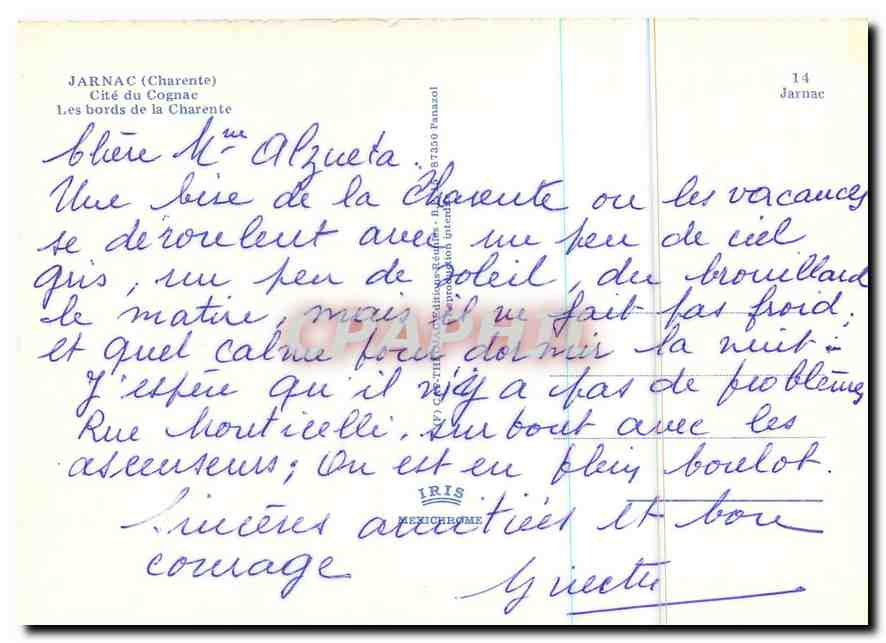 JARNAC (Charente)
Cité du Cognac
Les bords de la Charente
14
Jarnac
Chère Mme Alzueta.
Une bise de la Charente ou les vacances
se déroulent avec un peu de ciel
gris, un peu de soleil, du brouillard
le matin, mais il ne fait pas froid,
et quel calme pour dormir la nuit.
J'espère qu'il n'y a pas de problèmes
Rue Monticelli, surtout avec les
ascenseurs; On est en plein boulot.
Sincères amitiés et bon
courage
87350 Panazol
Editions Réunies
reproduction interdite
IRIS
MEXICHROME
CPAPHIL